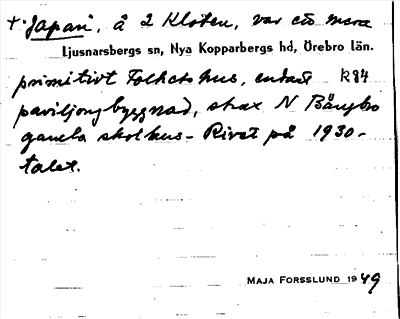 + Japan, å 2 Kloten, var ett mera
Ljusnarsbergs sn, Nya Kopparbergs hd, Örebro län.
primitivt Folkets hus, endast R84
paviljongbyggnad, strax N Bångbro
gamla skolhus - Rivet på 1930-
talet.
MAJA FORSSLUND 1949